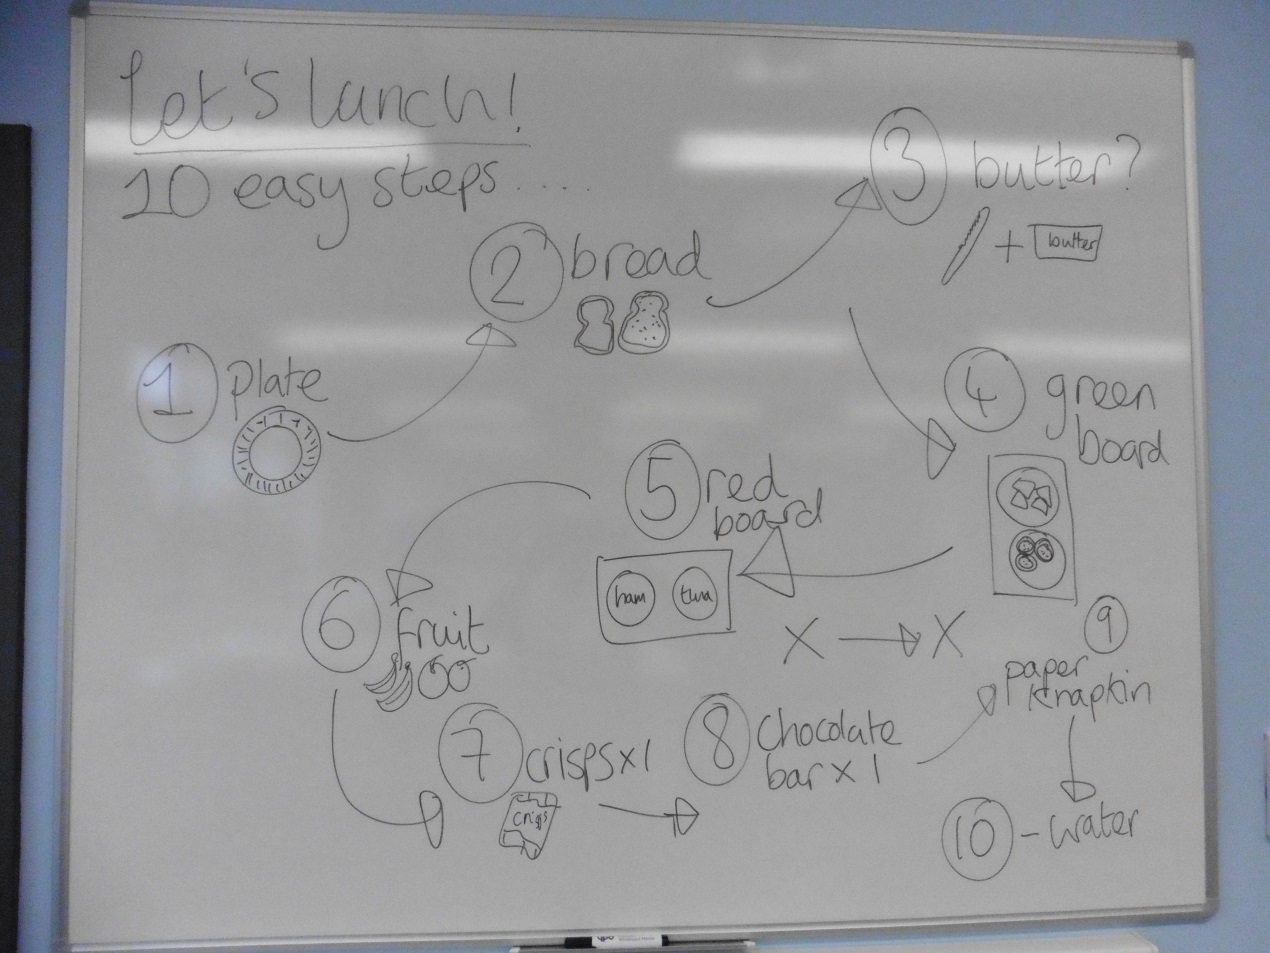 Let's lunch!
10 easy steps....
1 plate
2 bread
3 butter?
+ butter
4 green
board
5 red
board
ham tuna
X → X
6 fruit
7 crisps x 1
crisps
8 chocolate
bar x 1
9
paper
knapkin
10 - water